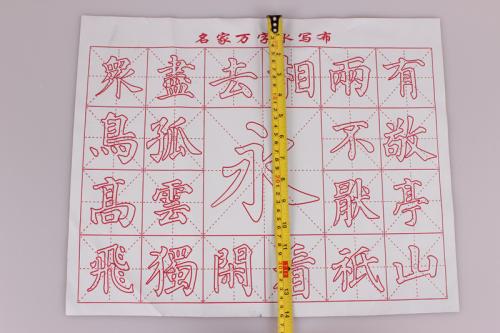 名家万字水写布
衆盡去相兩有
鳥孤永不敬
髙雲厭亭
飛獨閑看祇山